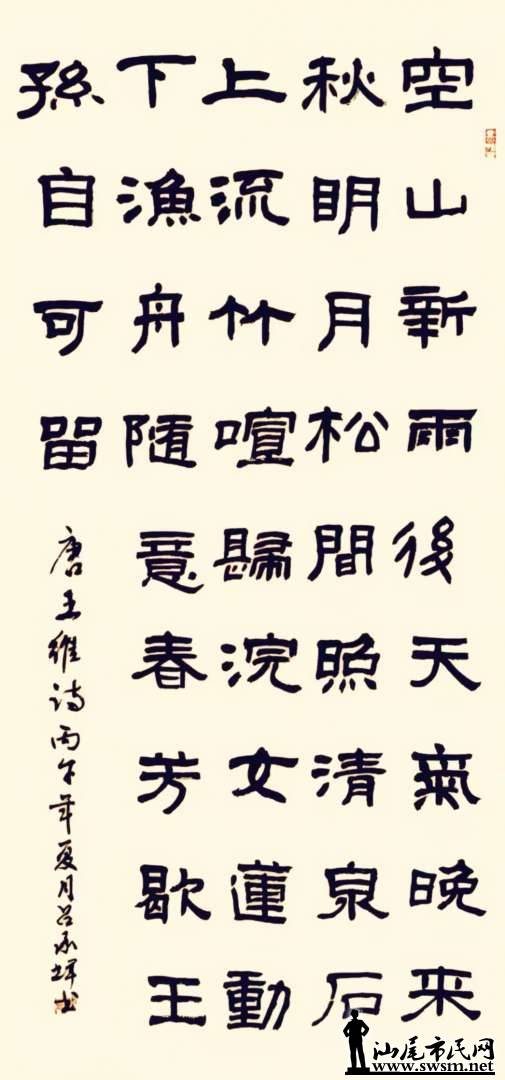 空山新雨後天氣晚来
秋眀月松間照清泉石
上流竹喧歸浣女蓮動
下漁舟随意春芳歇王
孫自可留
唐王維诗丙午年夏月吕承輝书
汕尾市民网
www.swsm.net